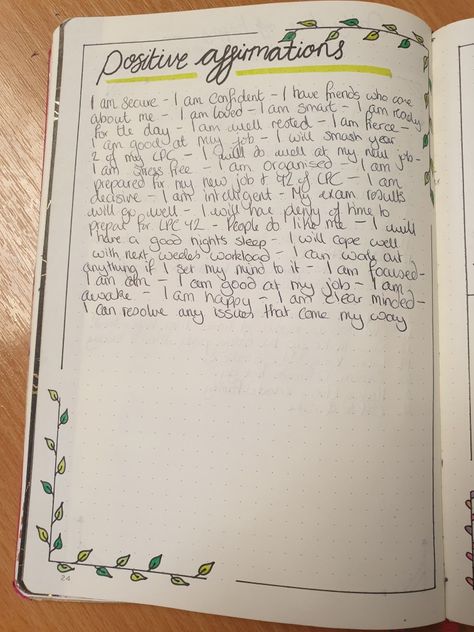 Positive affirmations
I am secure - I am confident - I have friends who care
about me - I am loved - I am smart - I am ready
for the day - I am well rested - I am fierce -
I am good at my job - I will smash year
2 of my LPC - I will do well at my new job -
I am stress free - I am organised - I am
prepared for my new job & Y2 of LPC - I am
decisive - I am intelligent - My exam results
will go well - I will have plenty of time to
prepare for LPC Y2 - People do like me - I will
have a good nights sleep - I will cope well
with next weeks workload - I can work out
anything if I set my mind to it - I am focused -
I am calm - I am good at my job - I am
awake - I am happy - I am clear minded -
I can resolve any issues that come my way
24